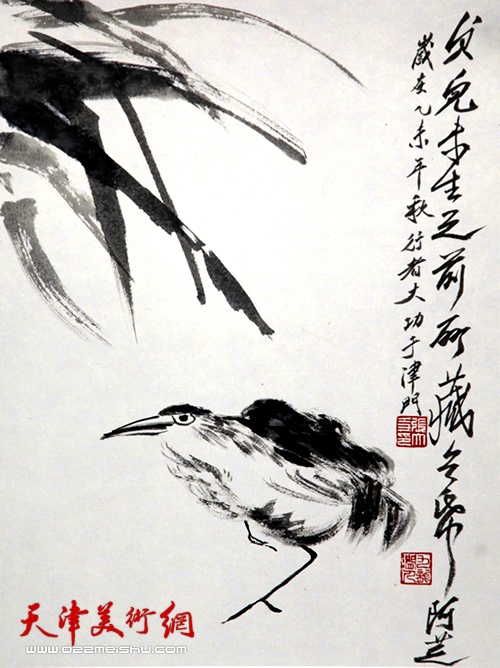 女兒未生之前所藏
阿芒
歲在乙未年秋行者大功于津門
天津美術網
www.022meishu.com